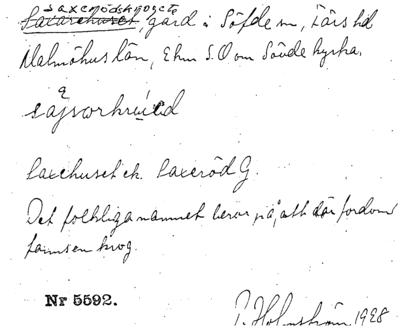 Saxerödskrogetø
gård i Söfde sn, Färs hd
Malmöhus län, 2 km S.O om Sövde kyrka.
Saxehuset ek. Saxeröd G.
Det folkliga namnet beror på, att där fordom
fanns en krog.
Nr 5592.
P. Holmström 1928